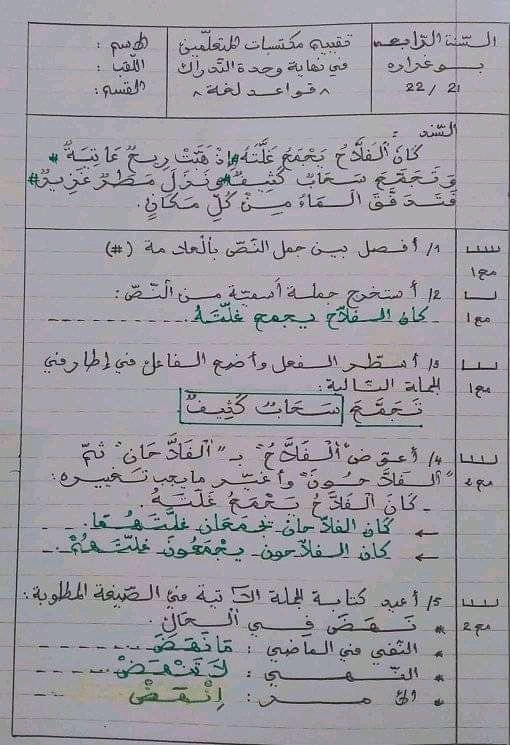 السّنة الرّابعة
بوعرادة
21 / 22
تقييم مكتسبات المتعلّمين
في نهاية وحدة التّدارك
"قواعد لغة"
الاسم :
اللّقب :
القسم :
السّند :
كَانَ الْفَلَّاحُ يَجْمَعُ غَلَّتَهُ # إِذْ هَبَّتْ رِيحٌ عَاتِيَةٌ #
وَتَجَمَّعَ سَحَابٌ كَثِيفٌ # وَنَزَلَ مَطَرٌ غَزِيرٌ #
فَتَدَفَّقَ الْمَاءُ مِنْ كُلِّ مَكَانٍ.
1/ أفصل بين جمل النّصّ بالعلامة (#)
مع1
2/ أستخرج جملة اسميّة من النّصّ :
مع1
كان الفلاّح يجمع غلّتَهُ.
3/ أسطّر الفعل وأضع الفاعل في إطار في
الجملة التّالية :
مع1
تَجَمَّعَ سَحَابٌ كَثِيفٌ
4/ أعوّض "الْفَلَّاحُ" بـ "الْفَلَّاحَانِ" ثمّ
"الْفَلَّاحُونَ" وأغيّر ما يجب تغييره :
مع2
ـ كَانَ الْفَلَّاحُ يَجْمَعُ غَلَّتَهُ.
← كان الفلاّحان يجمعان غلّتَهُمَا.
← كان الفلاّحون يجْمَعُونَ غلّتَهُمْ.
5/ أعيد كتابة الجملة الآتية في الصّيغة المطلوبة :
مع2
* نَهَضَ فِي الْحَالِ.
* النّفي في الماضي : مَا نَهَضَ
* النّهـــي : لَا تَنْهَضْ
* الأمـــر : اِنْهَضْ